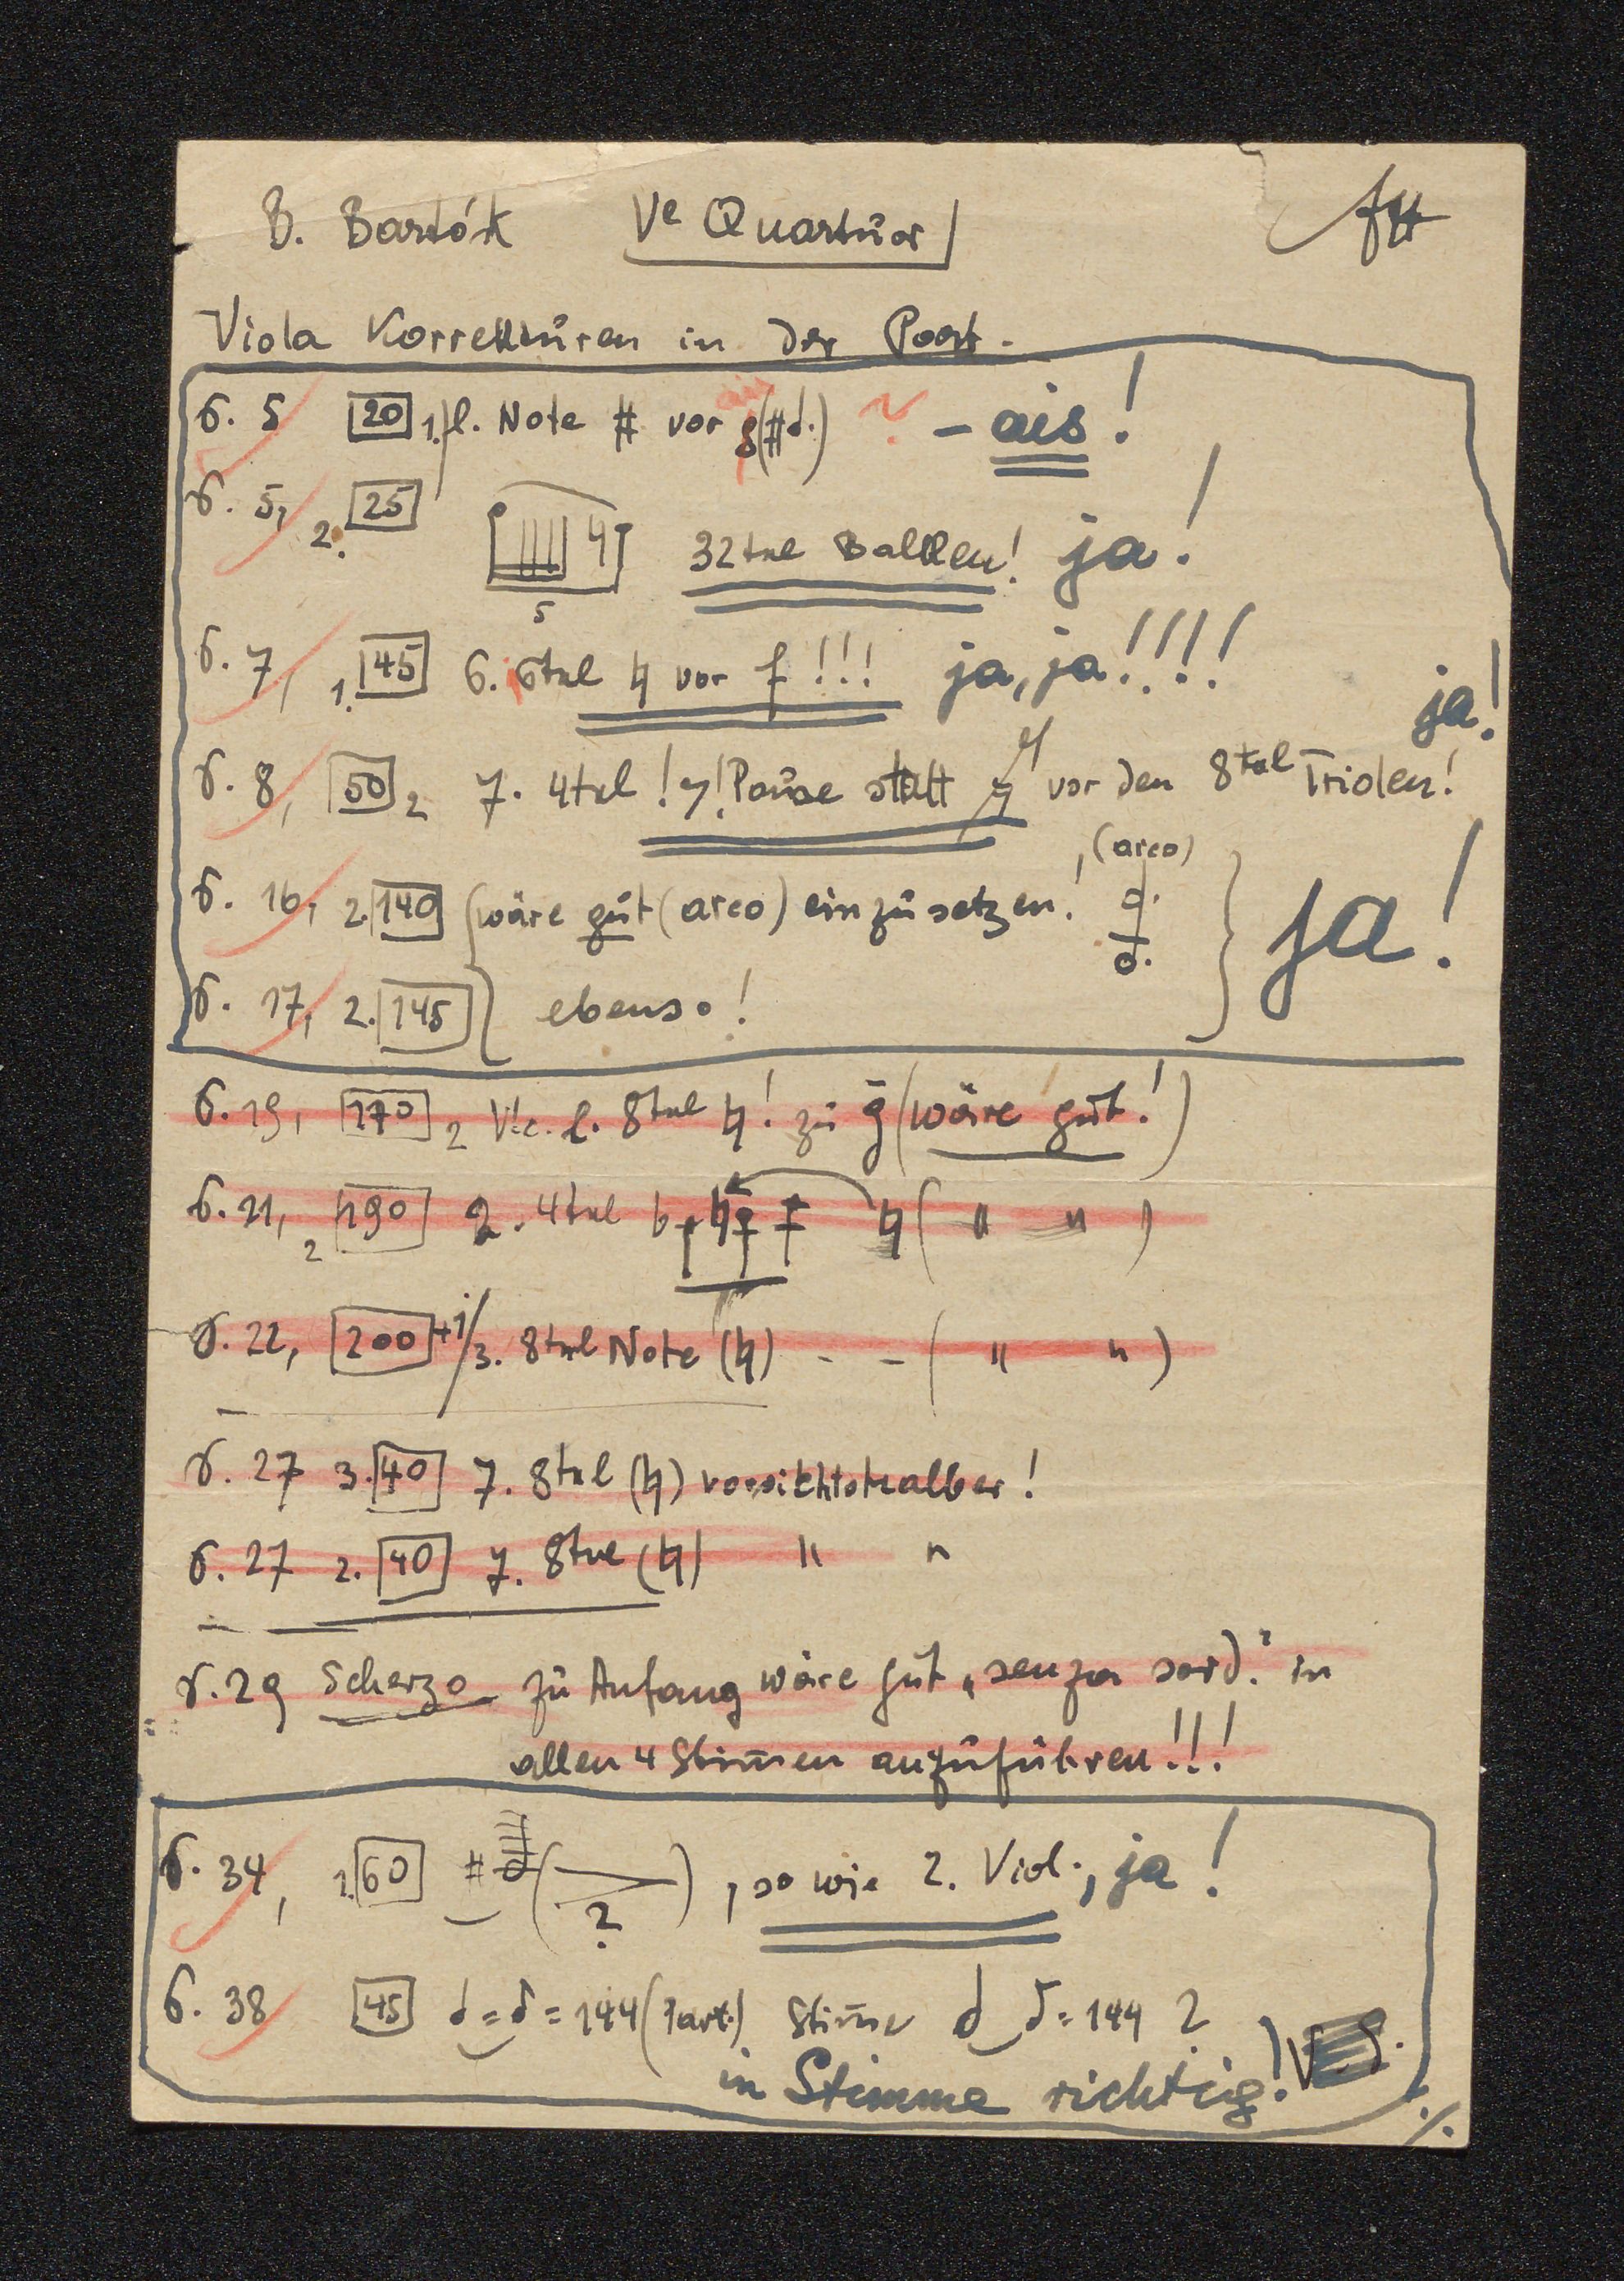 B. Bartók Ve Quartúor
Viola Korrektúren in der Part.
S. 5 20 1. l. Note # vor (#d.) – ais!
S. 5, 2. 25 5 32tel Balken! ja!
S. 7, 1. 45 6. 6tel ♮ vor f!!! ja, ja!!!!
ja!
S. 8, 50 2 7. 4tel ! 𝄾! Paúse statt vor den 8tel Triolen!
(arco)
S. 16, 2. 140 (wäre gút (arco) einzúsetzen!
S. 17, 2. 145 ebenso! ja!
S. 19, 170 2 Vlc. l. 8tel ♮! zú g (wäre gút!)
S. 21, 2 190 2. 4tel ♭ ♮ ♮ ( " " )
S. 22, 200 +1/3. 8tel Note (♮) - - ( " " )
S. 27 3. 40 7. 8tel (♮) vorsichtshalber!
S. 27 2. 40 7. 8tel (♮) " "
S. 29 Scherzo zú Anfang wäre gút „senza sord." in
allen 4 Stim̄en anzúführen!!!
S. 34, 1. 60 # ( > ? ), so wie 2. Viol., ja!
S. 38 45 = = 144 (Part.) Stim̄e = 144 ?
in Stimme richtig! V. S.
./.